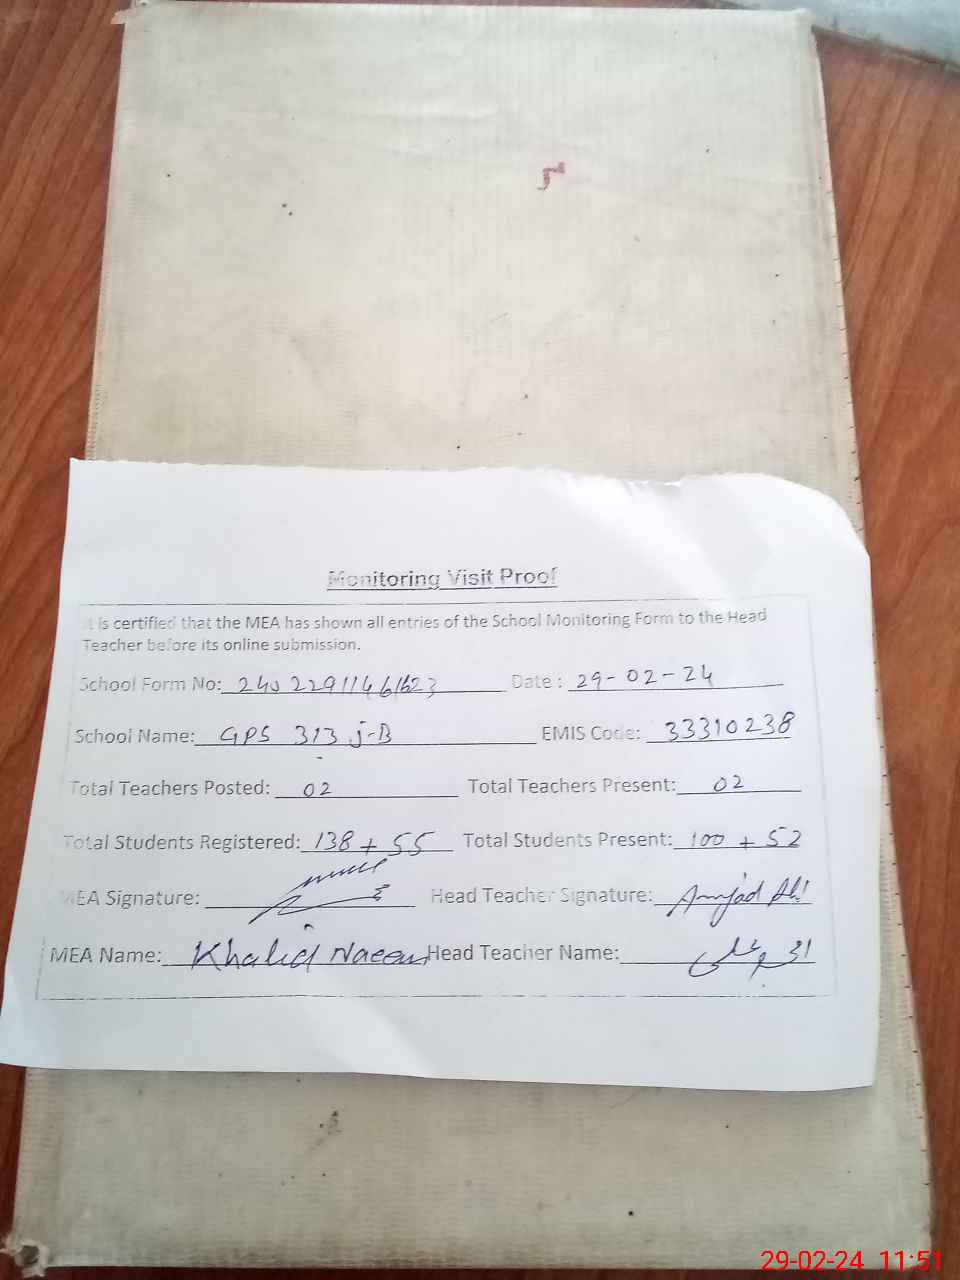 Monitoring Visit Proof
It is certified that the MEA has shown all entries of the School Monitoring Form to the Head
Teacher before its online submission.
School Form No: Date : 29-02-24
School Name: GPS 313 j-B EMIS Code: 33310238
Total Teachers Posted: 02 Total Teachers Present: 02
Total Students Registered: 138 + 55 Total Students Present: 100 + 52
MEA Signature: Head Teacher Signature: Amjad Ali
MEA Name: Khalid Naeem Head Teacher Name: امجد علی
29-02-24 11:51